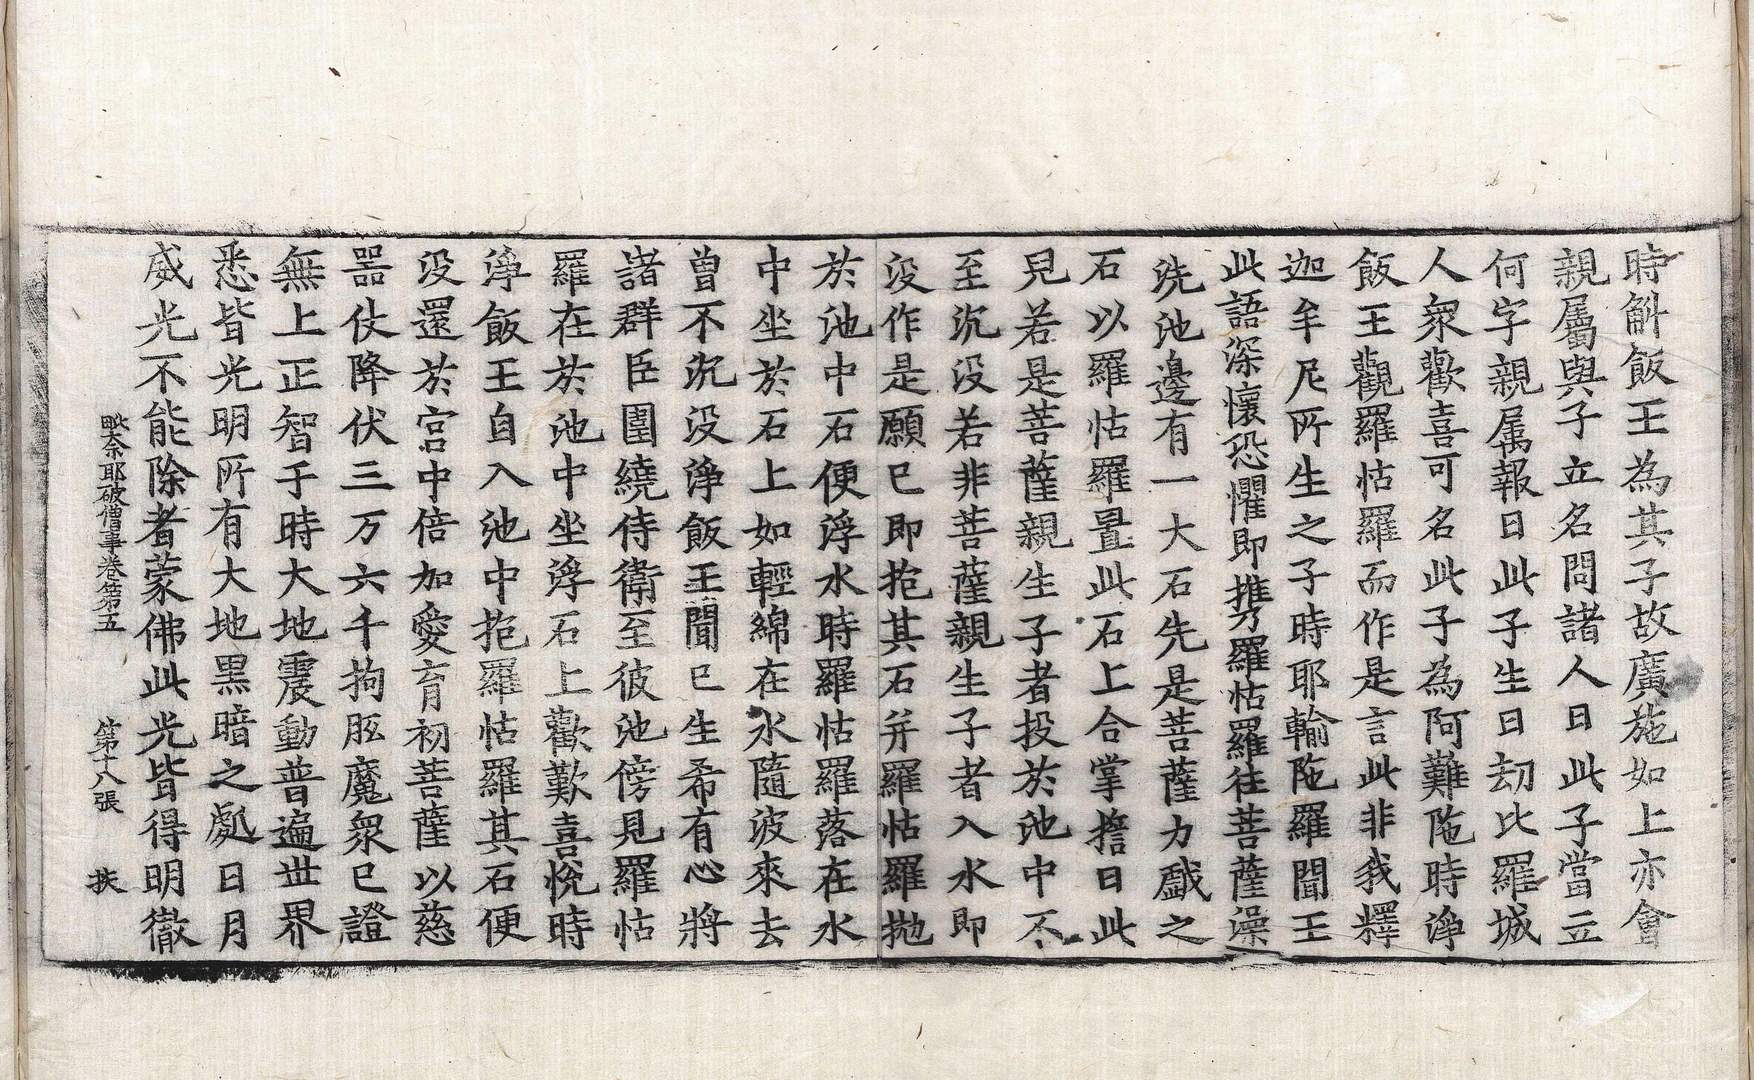 時斛飯王為其子故廣施如上亦會
親屬與子立名問諸人曰此子當立
何字親属報曰此子生日劫比羅城
人衆歡喜可名此子為阿難陁時淨
飯王觀羅怙羅而作是言此非我釋
迦牟尼所生之子時耶輸陁羅聞王
此語深懷恐懼即携羅怙羅往菩薩澡
洗池邊有一大石先是菩薩力戲之
石以羅怙羅置此石上合掌擔曰此
兒若是菩薩親生子者投於池中不
至沉没若非菩薩親生子者入水即
没作是願已即抱其石并羅怙羅拋
於池中石便浮水時羅怙羅落在水
中坐於石上如輕綿在水隨波來去
曾不沉没淨飯王聞已生希有心將
諸群臣圍繞侍衛至彼池傍見羅怙
羅在於池中坐浮石上歡歎喜悅時
淨飯王自入池中抱羅怙羅其石便
没還於宫中倍加愛育初菩薩以慈
器仗降伏三万六千拘胝魔衆已證
無上正智于時大地震動普遍世界
悉皆光明所有大地黒暗之處日月
威光不能除者蒙佛此光皆得明徹
毗奈耶破僧事卷第五 第十八張 扶